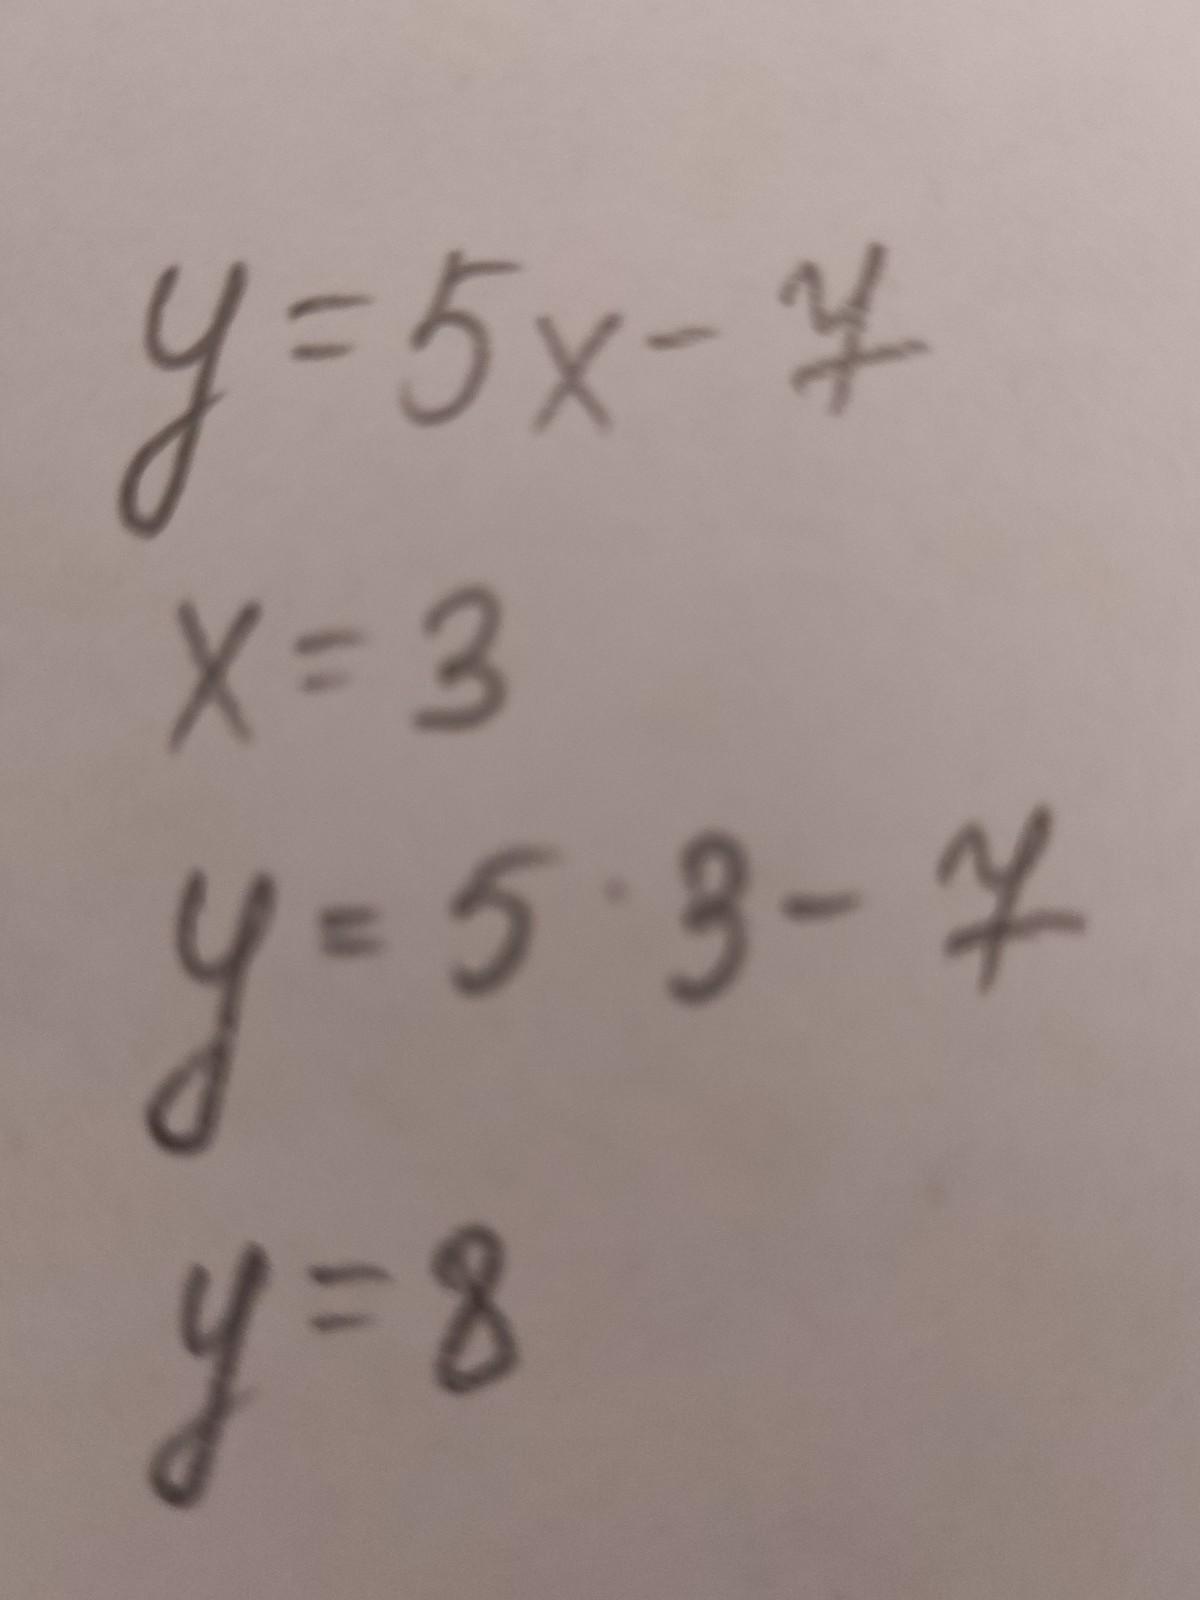 y = 5x - 7
x = 3
y = 5 · 3 - 7
y = 8